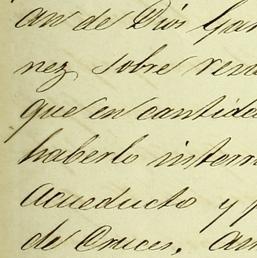 an de Dios Gar
nez, sobre rem
que en cantidad
haberlo interr
acueducto y p
de Cruces, an